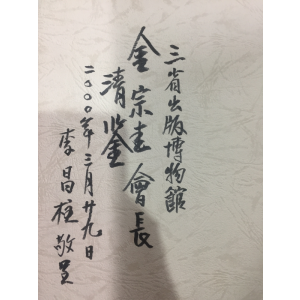 三省出版博物館
金宗圭會長
清鉴
二〇〇〇年三月廿九日
李昌柱敬呈